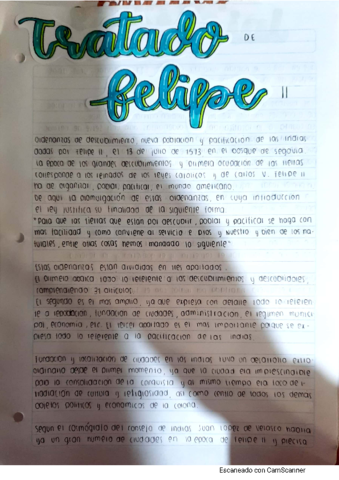 Tratado DE
Felipe II
ordenanzas de descubrimiento nueva población y pacificación de las indias
dadas por Felipe II, el 13 de julio de 1573 en el bosque de segovia.
la época de los grandes descubrimientos y primera ocupación de las tierras
corresponde a los reinados de los reyes católicos y de carlos V. Felipe II
ha de organizar, poblar, pacificar el mundo americano
De aquí la promulgación de estas ordenanzas, en cuya introducción
el rey justifica su finalidad de la siguiente forma.
"Para que las tierras que estan por descubrir, poblar y pacificar se haga con
mas facilidad y como conviene al servicio e Dios y nuestro y bien de los na-
turales, entre otras cosas hemos mandado lo siguiente"
Estas ordenanzas estan divididas en tres apartados.
El primero abarca todo lo referente a los descubrimientos y descubridores,
comprendiendo 31 artículos.
El segundo es el mas amplio, ya que expresa con detalle todo lo referen
te a repoblación, fundación de ciudades, administración, el regimen munici
pal, economia, etc. El tercer apartado es el mas importante porque se ex-
presa todo lo referente a la pacificación de las indias.
Fundación y localización de ciudades en las indias tuvo un desarrollo extra
ordinario desde el primer momento, ya que la ciudad era imprescindible
para la consolidación de la conquista y al mismo tiempo era foco de i-
rradiación de cultura y religiosidad, así como centro de todos los demas
objetos politicos y economicos de la corona.
Segun el cosmógrafo del consejo de indias Juan lopez de velasco habria
ya un gran numero de ciudades en la época de Felipe II y precisa
Escaneado con CamScanner